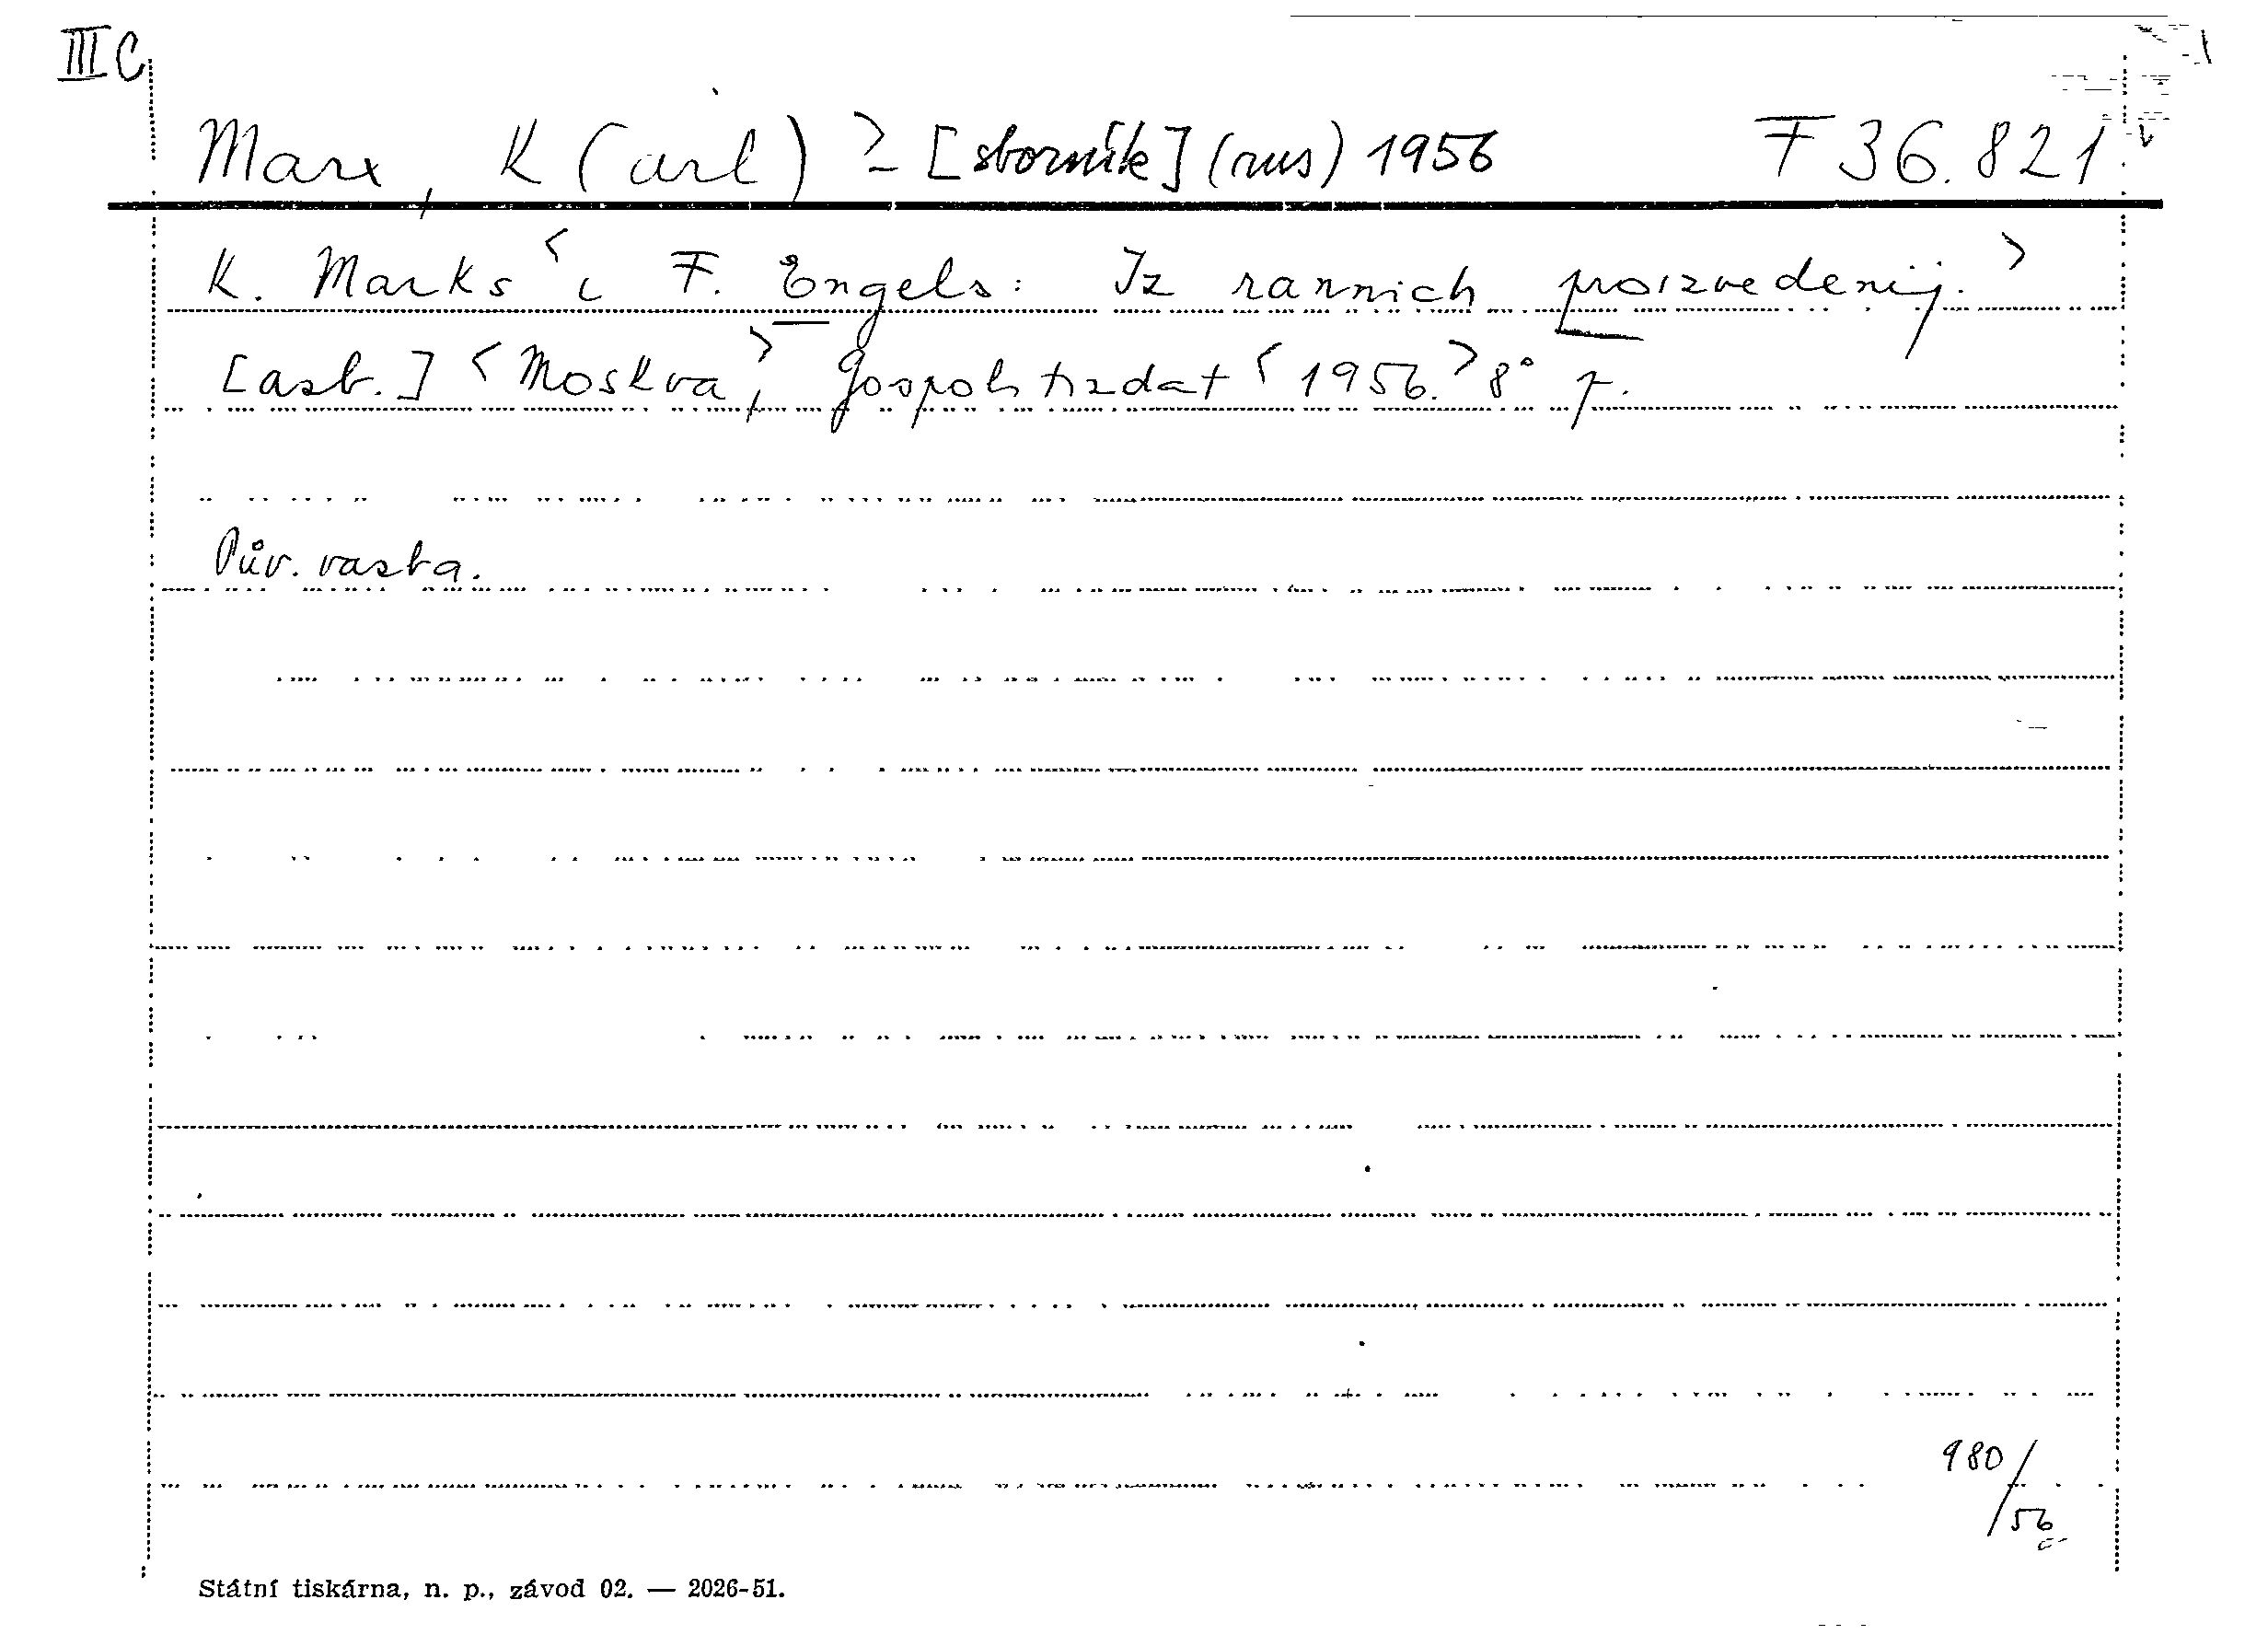 III C
Marx, K (arl) > - [sborník] (rus) 1956 F 36.821
K. Marks < i F. Engels: Iz rannich proizvedenij. >
[azb.] < Moskva >, Gospolitizdat < 1956. > 8° p.
Pův. vazba.
980/56
Státní tiskárna, n. p., závod 02. — 2026-51.